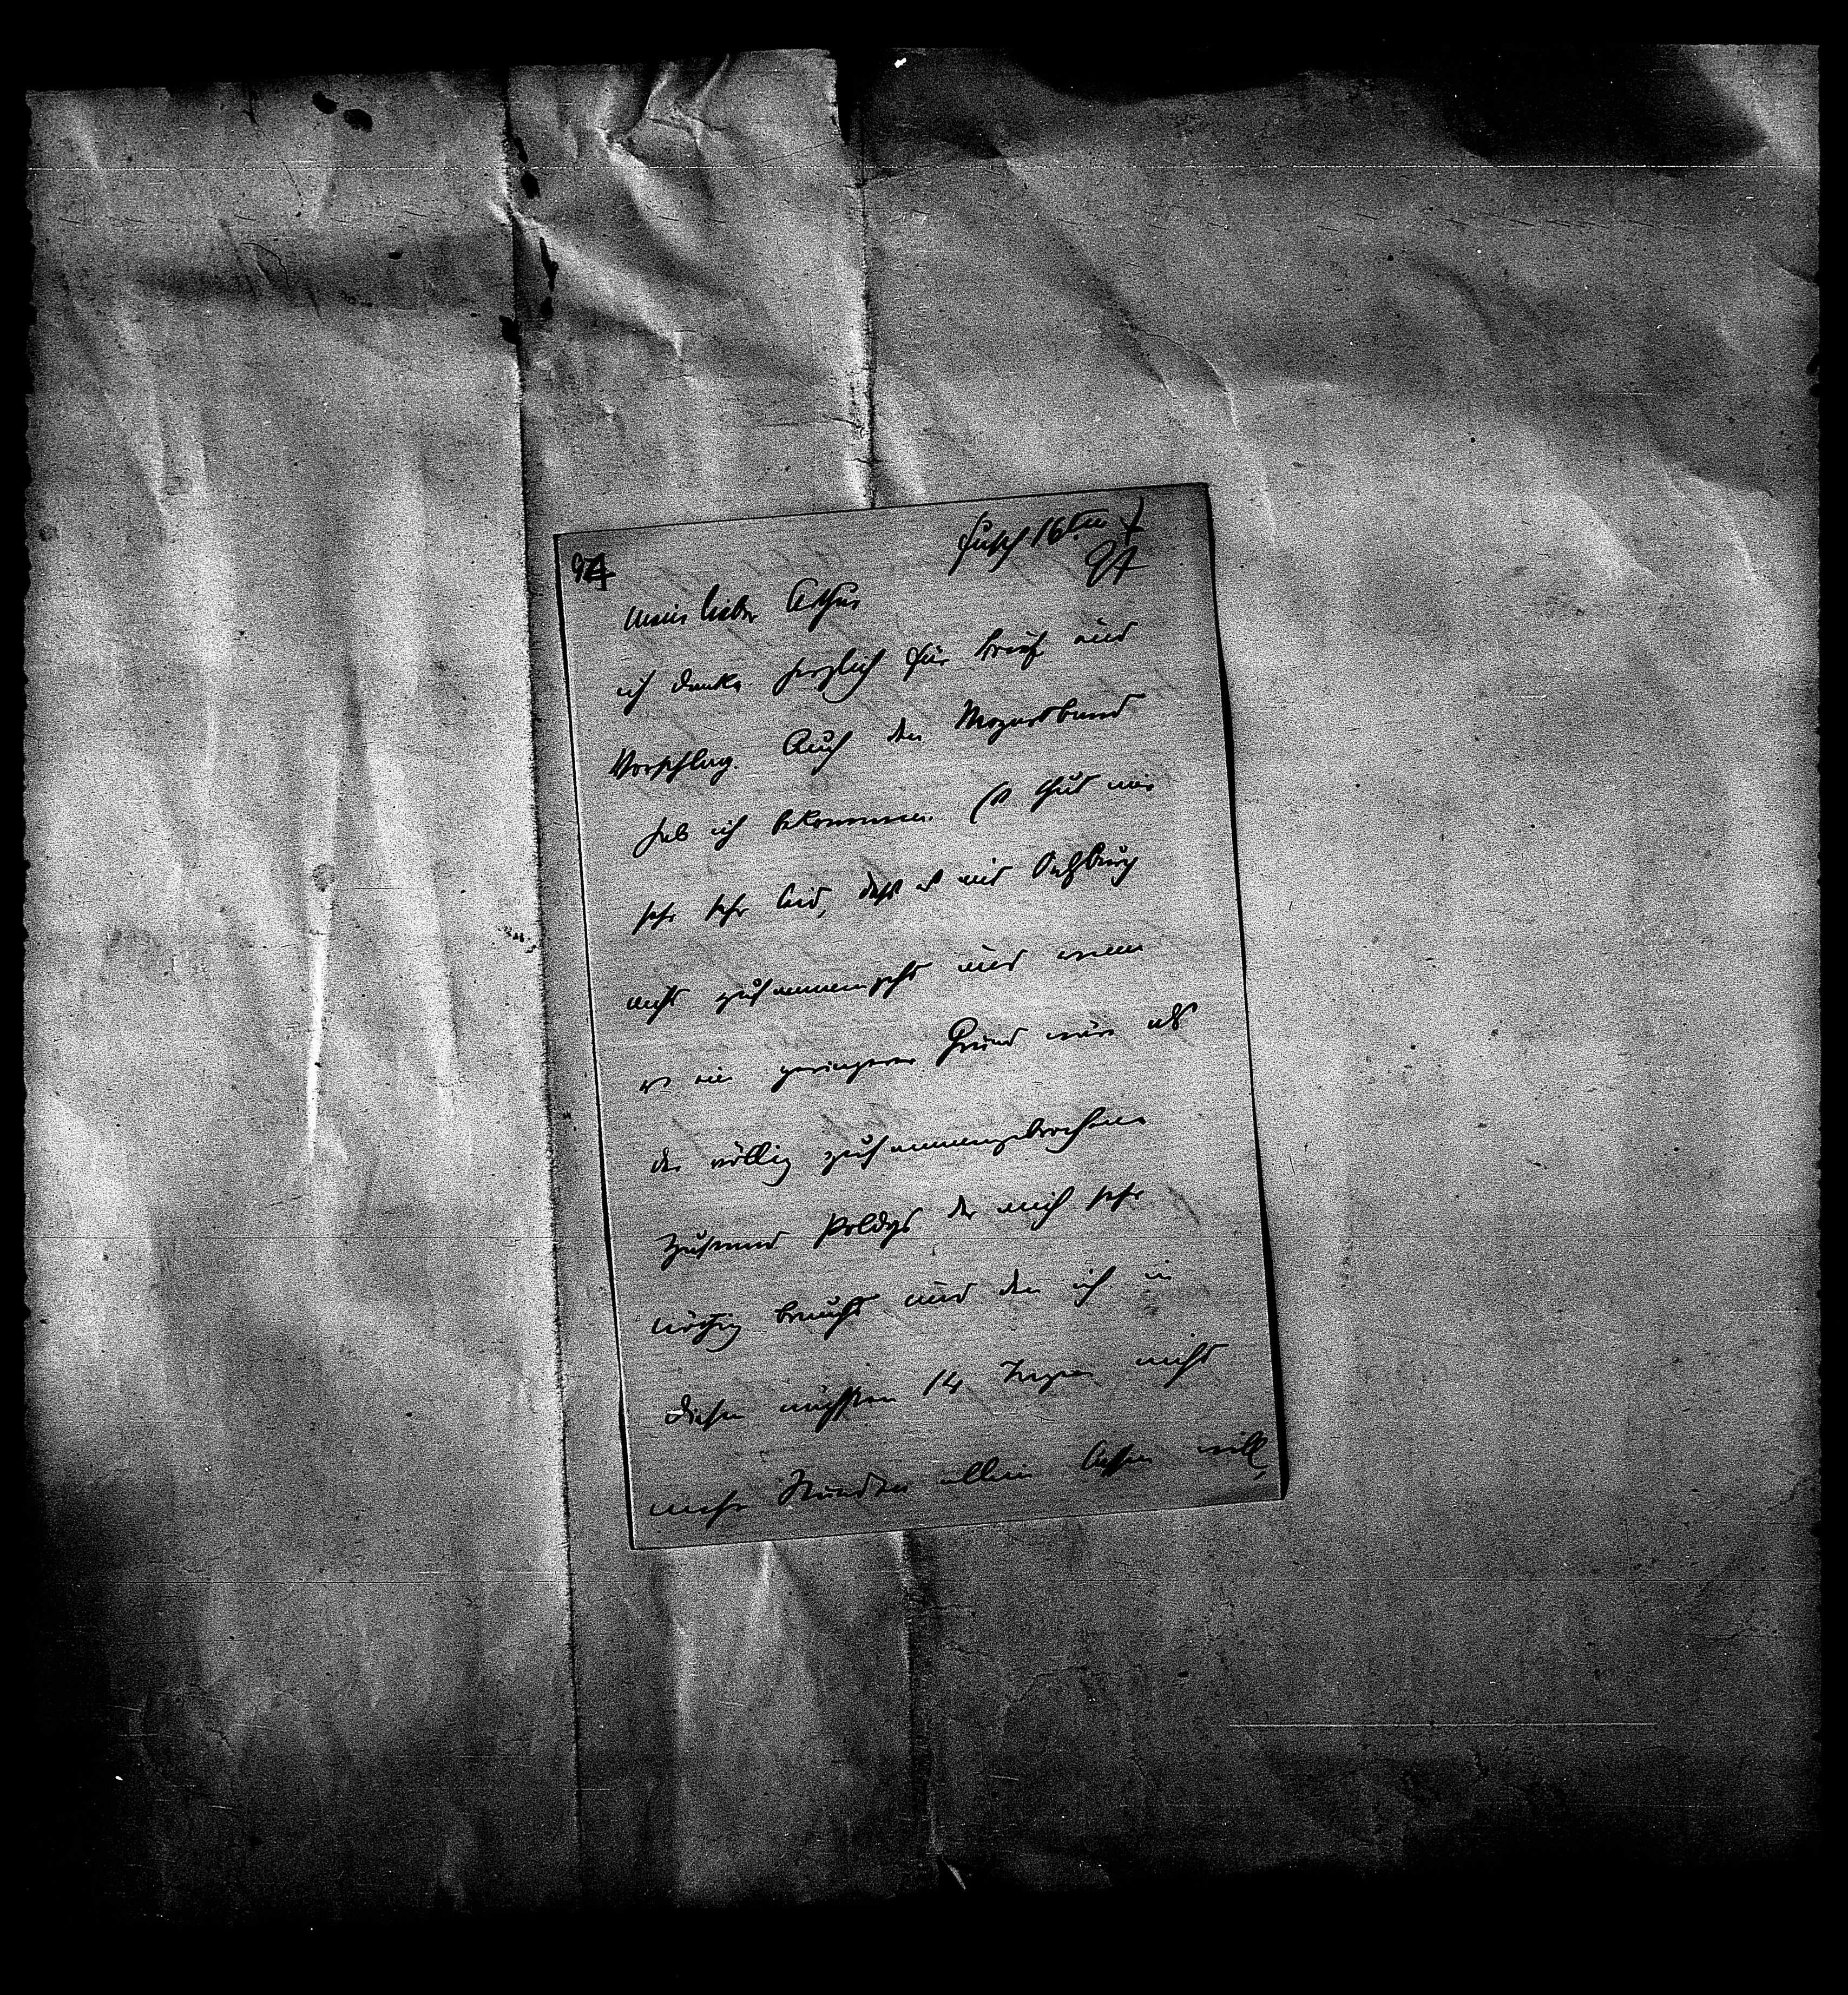 94
Fusch 16ten
94
mein lieber Arthur
ich danke herzlich für Brief und
Vorschlag. Auch den Mozartband
hab ich bekommen. Es thut mir
sehr sehr leid, dass es mit Salzburg
nicht zusammengeht und wenn
es ein geringerer Grund wäre als
der völlig zusammengebrochene
Zustand Poldys der mich sehr
nöthig braucht und den ich in
diesen nächsten 14 Tagen nicht
mehr Stunden allein lassen will,